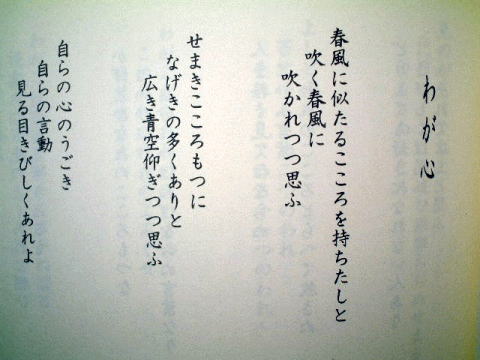 わが心
春風に似たるこころを持ちたしと
吹く春風に
吹かれつつ思ふ
せまきこころもつに
なげきの多くありと
広き青空仰ぎつつ思ふ
自らの心のうごき
自らの言動
見る目きびしくあれよ